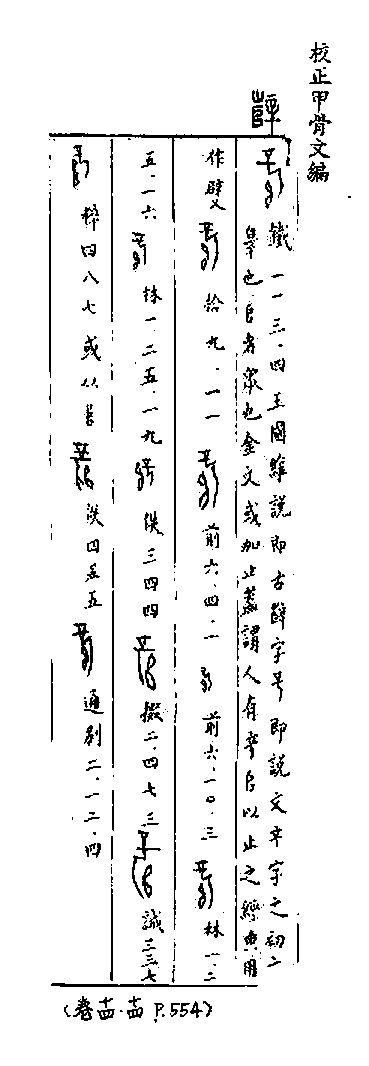 校正甲骨文編
辥
鐵一一三·四王國維說即古辥字号即說文辛字之初二
辠也𠂤者眾也金文或加止蓋謂人有辛𠂤以止之經典用
作嬖 拾九·一一 前六·四·一 前六·一〇·三 林一·二
五·一六 林一·二五·一九 佚三四四 掇二·四七三 誠三三七
粹四八七或从𠂤 佚四五五 通別二·一二·四
(卷十四·十四 P.554)